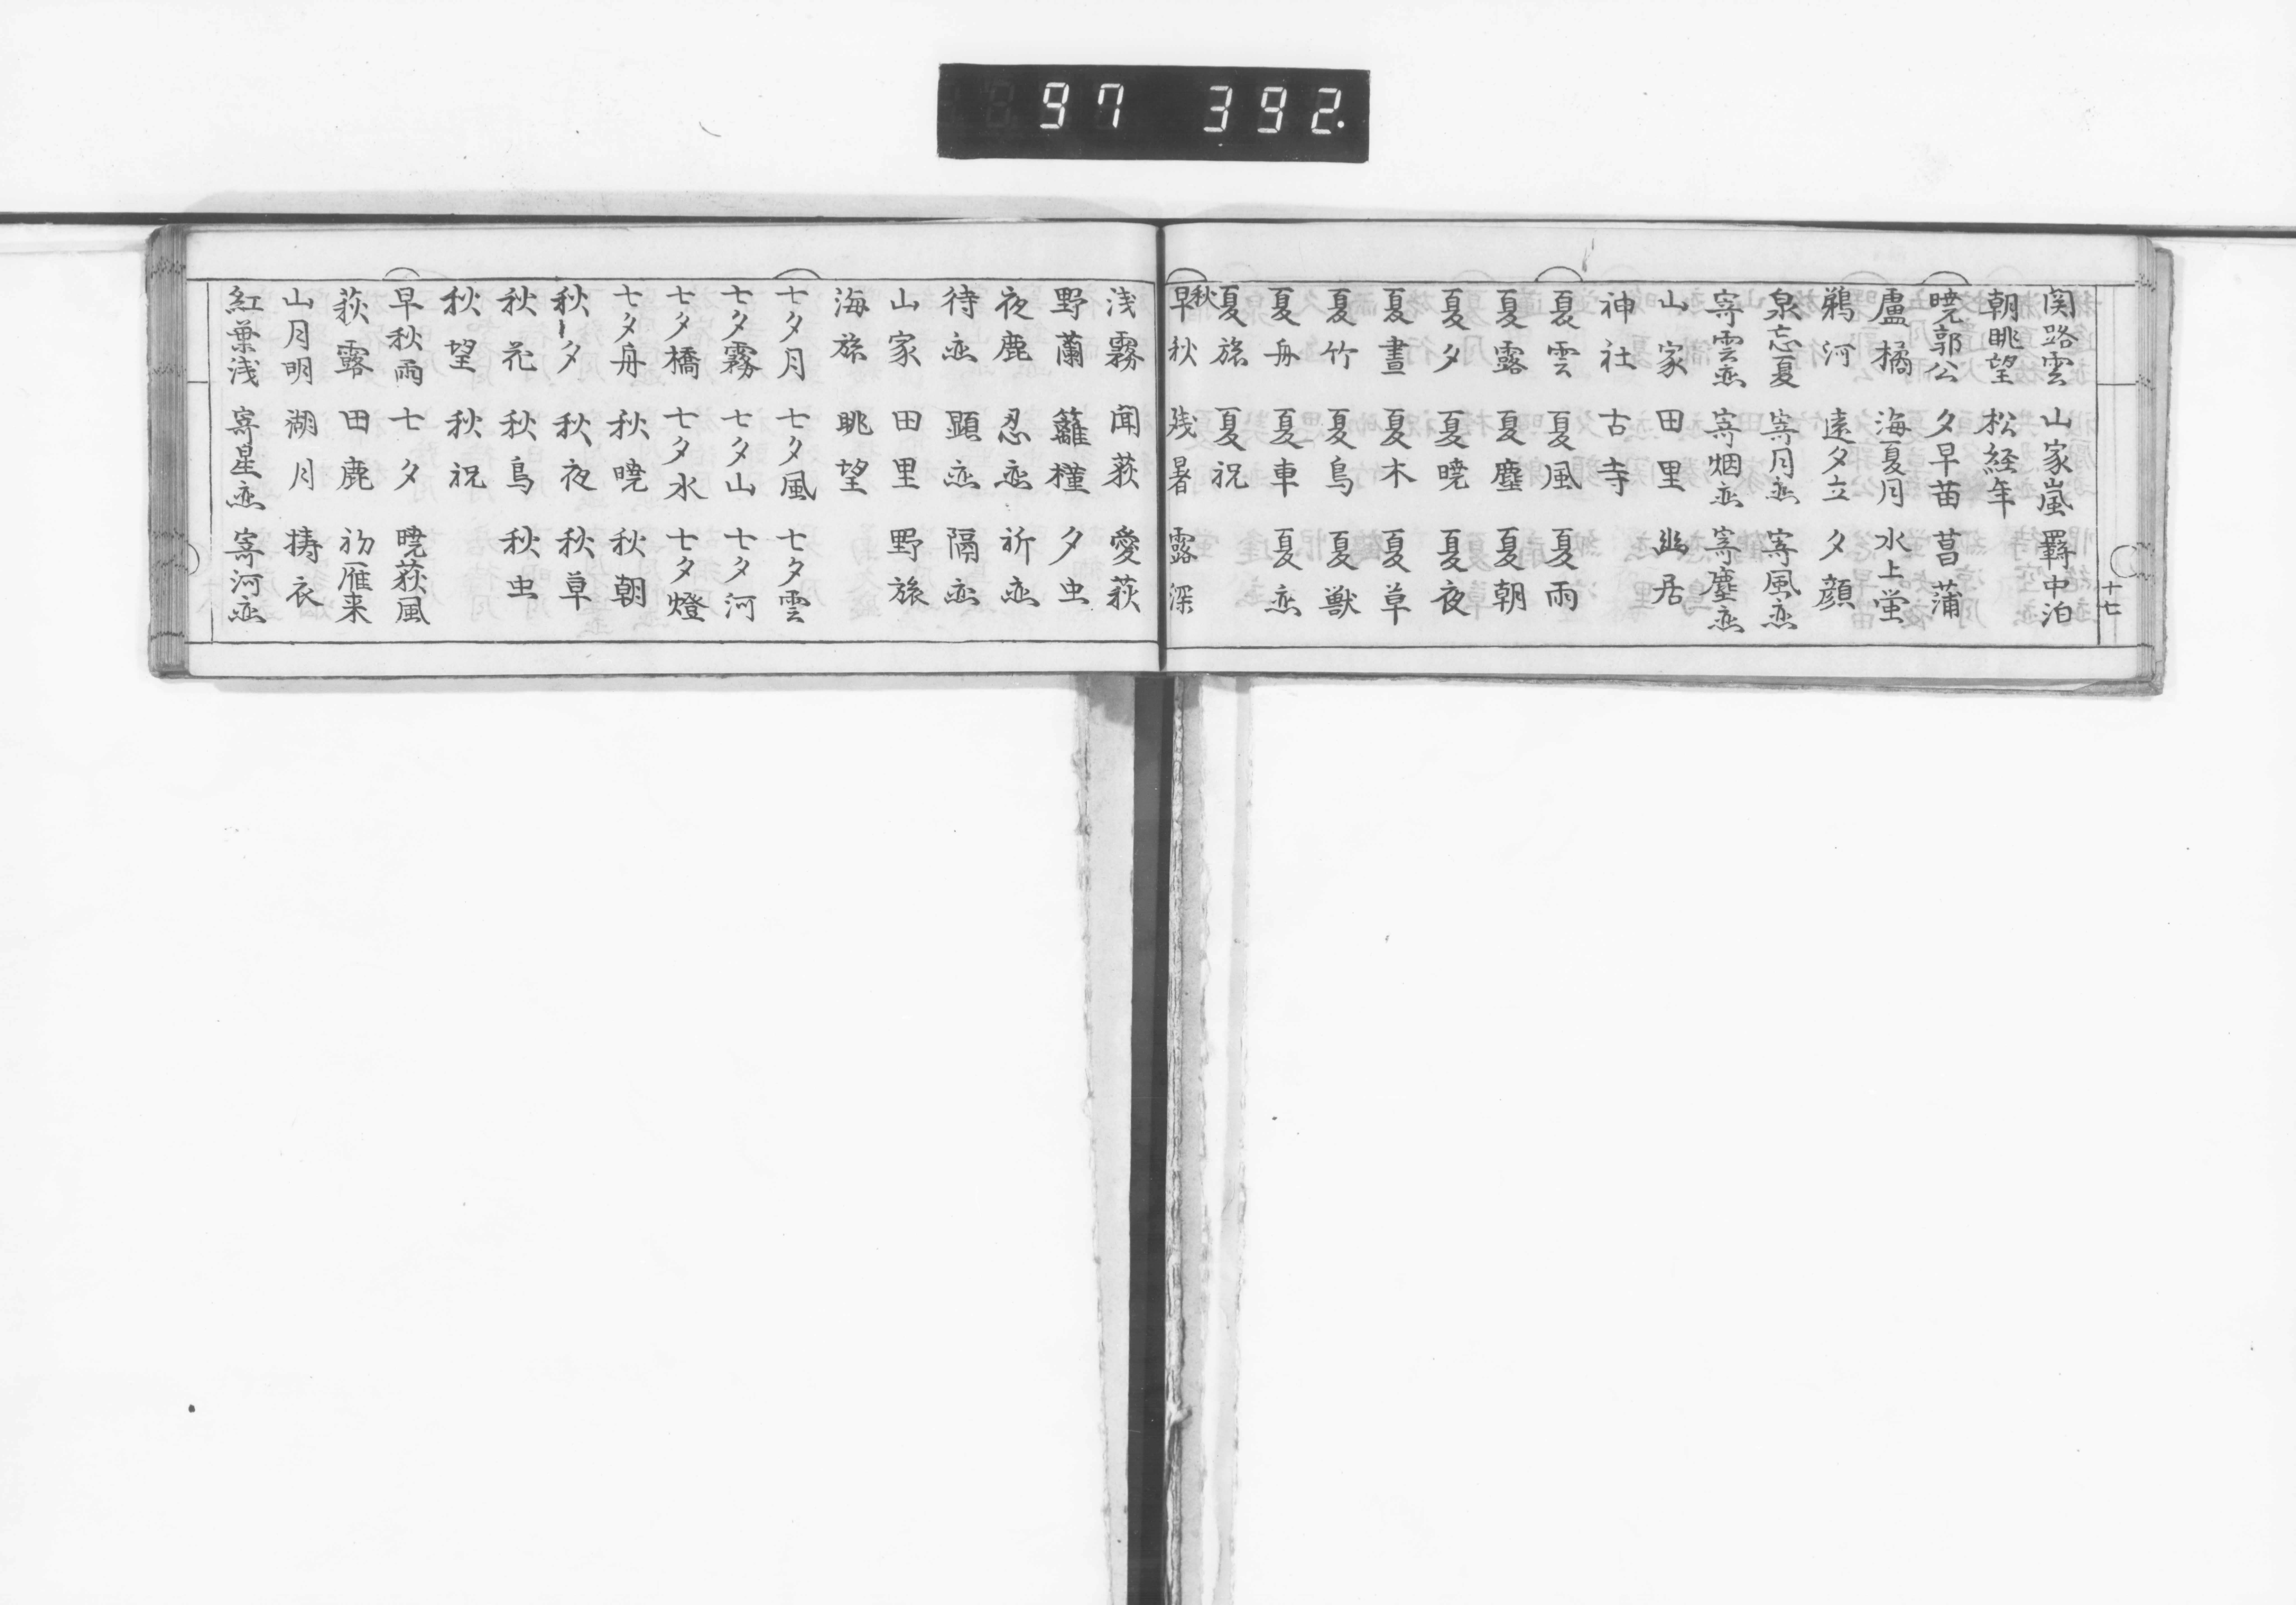 97 392.
十七
関路雲 山家嵐 羇中泊
朝眺望 松経年
暁郭公 夕早苗 菖蒲
盧橘 海夏月 水上蛍
鵜河 遠夕立 夕顔
泉忘夏 寄月恋 寄風恋
寄雲恋 寄烟恋 寄塵恋
山家 田里 幽居
神社 古寺
夏雲 夏風 夏雨
夏露 夏塵 夏朝
夏夕 夏暁 夏夜
夏昼 夏木 夏草
夏竹 夏鳥 夏獣
夏舟 夏車 夏恋
夏旅 夏祝
秋
早秋 残暑 露深
浅霧 聞荻 愛萩
野蘭 籬槿 夕虫
夜鹿 忍恋 祈恋
待恋 顕恋 隔恋
山家 田里 野旅
海旅 眺望
七夕月 七夕風 七夕雲
七夕霧 七夕山 七夕河
七夕橋 七夕水 七夕燈
七夕舟 秋暁 秋朝
秋夕 秋夜 秋草
秋花 秋鳥 秋虫
秋望 秋祝
早秋雨 七夕 暁荻風
萩露 田鹿 初雁来
山月明 湖月 擣衣
紅葉浅 寄星恋 寄河恋